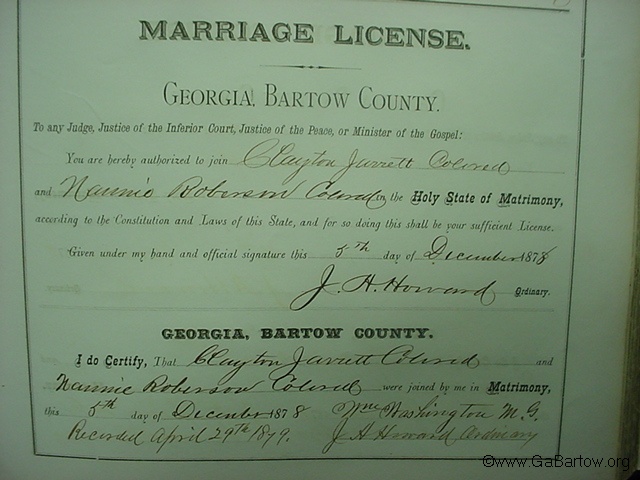 MARRIAGE LICENSE.
GEORGIA, BARTOW COUNTY.
To any Judge, Justice of the Inferior Court, Justice of the Peace, or Minister of the Gospel:
You are hereby authorized to join Clayton Jarrett Colored
and Nannie Roberson Colored in the Holy State of Matrimony,
according to the Constitution and Laws of this State, and for so doing this shall be your sufficient License.
Given under my hand and official signature this 5th day of December 1878
J. H. Howard Ordinary.
GEORGIA, BARTOW COUNTY.
I do Certify, That Clayton Jarrett Colored and
Nannie Roberson Colored were joined by me in Matrimony,
this 5th day of December 1878 Wm Washington M. G.
Recorded April 29th 1879. J H Howard Ordinary
©www.GaBartow.org